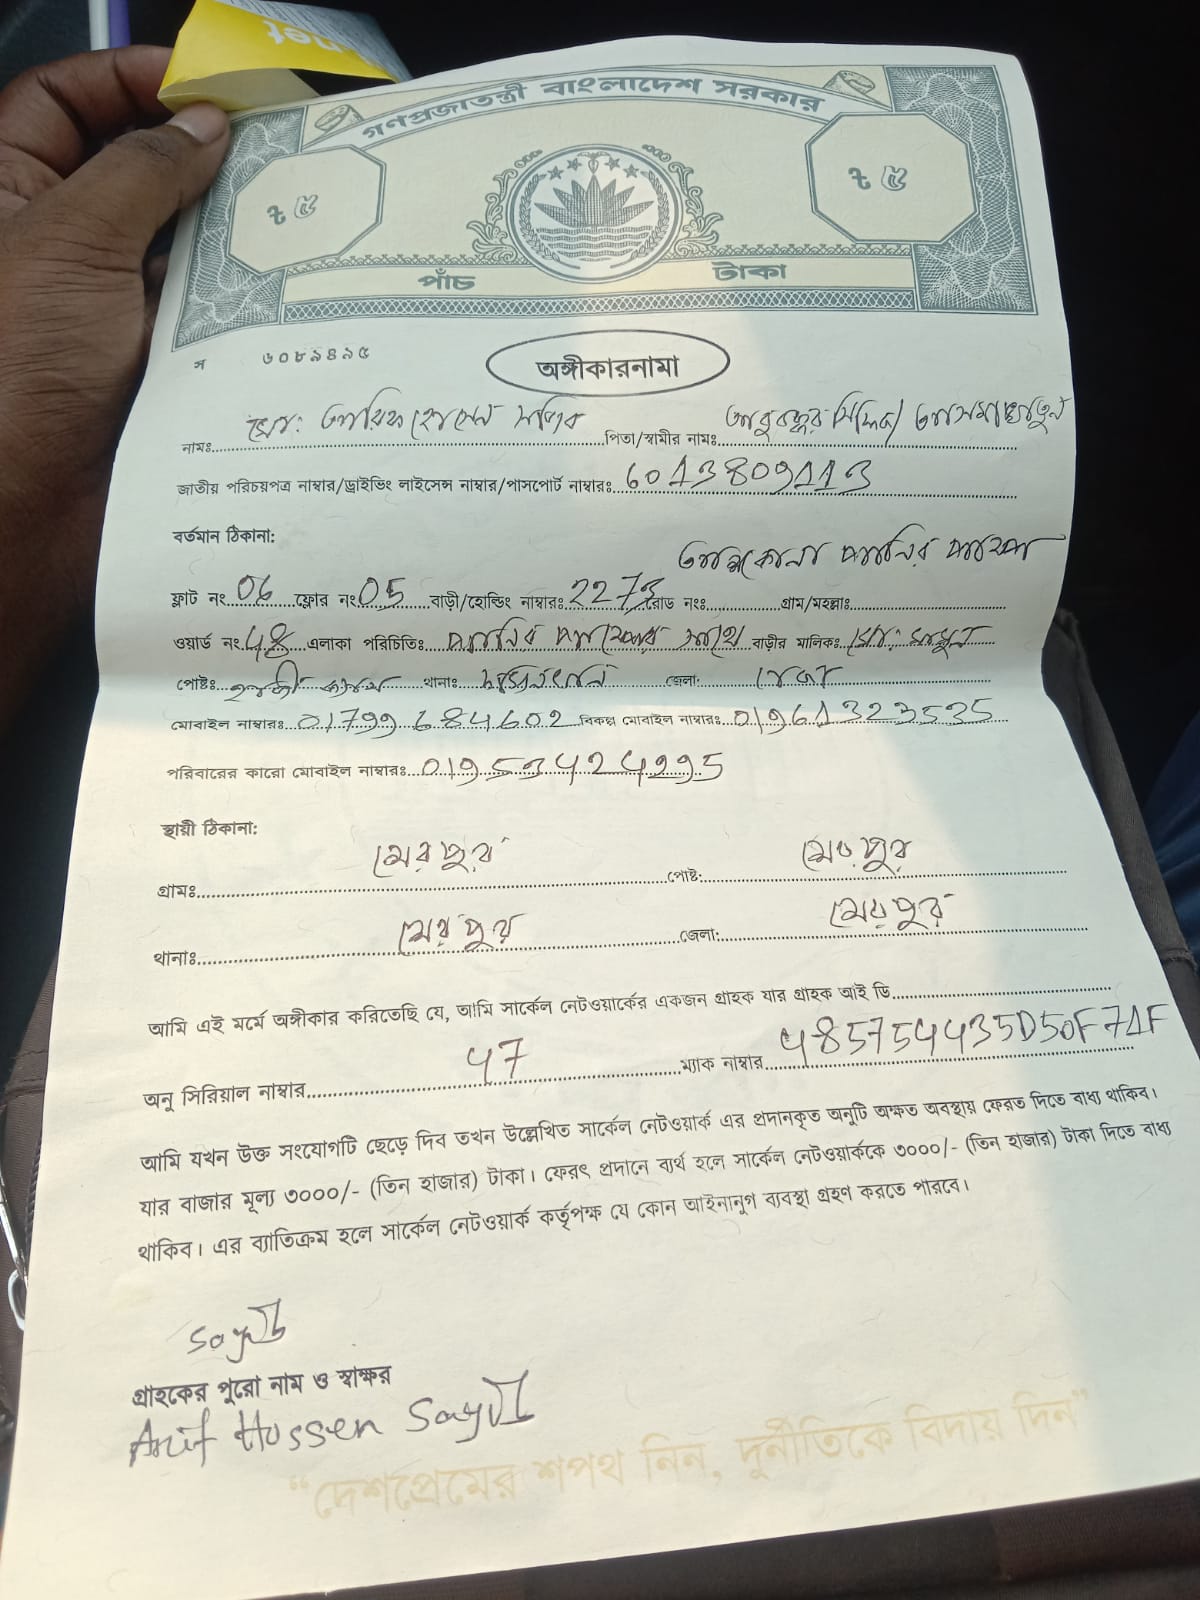 গণপ্রজাতন্ত্রী বাংলাদেশ সরকার
৳ ৫ ৳ ৫
পাঁচ টাকা
স ৬০৮৯৪৯৫
অঙ্গীকারনামা
নামঃ মোঃ আরিফ হোসেন পিতা/স্বামীর নামঃ
জাতীয় পরিচয়পত্র নাম্বার/ড্রাইভিং লাইসেন্স নাম্বার/পাসপোর্ট নাম্বারঃ 6013809113
বর্তমান ঠিকানা:
ফ্লাট নং 06 ফ্লোর নং 05 বাড়ী/হোল্ডিং নাম্বারঃ 2273 রোড নং গ্রাম/মহল্লাঃ পানির পাম্প
ওয়ার্ড নং 48 এলাকা পরিচিতিঃ পানির পাম্পের সাথে বাড়ীর মালিকঃ মোঃ
পোষ্টঃ থানাঃ জেলা: ঢাকা
মোবাইল নাম্বারঃ 01799684602 বিকল্প মোবাইল নাম্বারঃ 01961323535
পরিবারের কারো মোবাইল নাম্বারঃ 01953424295
স্থায়ী ঠিকানা:
গ্রামঃ শেরপুর পোষ্ট: শেরপুর
থানাঃ শেরপুর জেলা: শেরপুর
আমি এই মর্মে অঙ্গীকার করিতেছি যে, আমি সার্কেল নেটওয়ার্কের একজন গ্রাহক যার গ্রাহক আই ডি
অনু সিরিয়াল নাম্বার 47 ম্যাক নাম্বার 485754435D50F71F
আমি যখন উক্ত সংযোগটি ছেড়ে দিব তখন উল্লেখিত সার্কেল নেটওয়ার্ক এর প্রদানকৃত অনুটি অক্ষত অবস্থায় ফেরত দিতে বাধ্য থাকিব।
যার বাজার মূল্য ৩০০০/- (তিন হাজার) টাকা। ফেরৎ প্রদানে ব্যর্থ হলে সার্কেল নেটওয়ার্ককে ৩০০০/- (তিন হাজার) টাকা দিতে বাধ্য
থাকিব। এর ব্যাতিক্রম হলে সার্কেল নেটওয়ার্ক কর্তৃপক্ষ যে কোন আইনানুগ ব্যবস্থা গ্রহণ করতে পারবে।
গ্রাহকের পুরো নাম ও স্বাক্ষর
Arif Hossen
“দেশপ্রেমের শপথ নিন, দুর্নীতিকে বিদায় দিন”